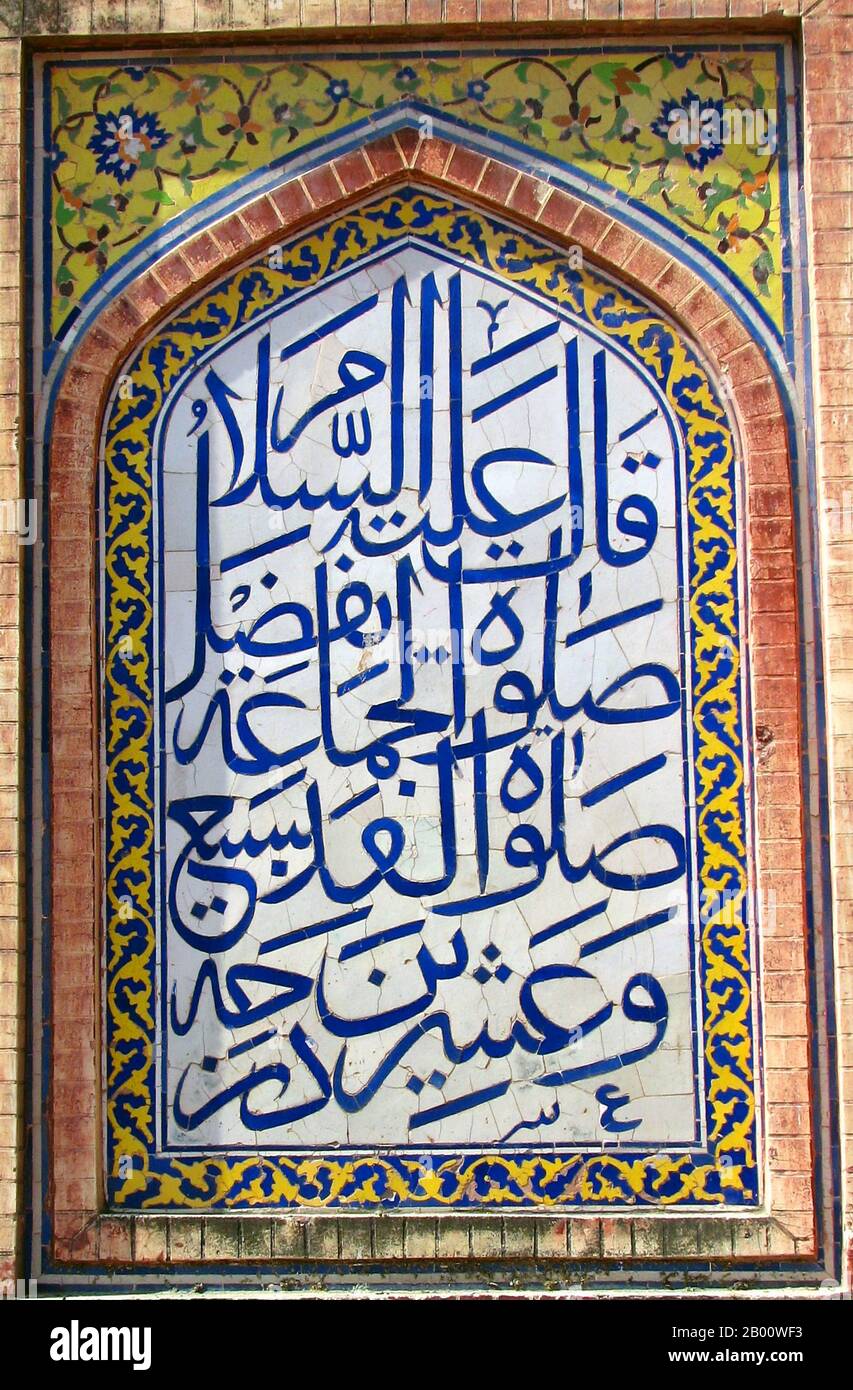 قال عليه السلام
صلوة الجماعة تفضل
صلوة الفذ بسبع
وعشرين درجة
alamy
Image ID: 2B00WF3
www.alamy.com